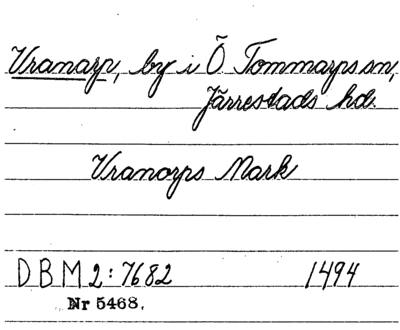 Vranarp, by i Ö Tommarps sn,
Järrestads hd.
Vranorps Mark
DBM 2:7682 1494
Nr 5468.